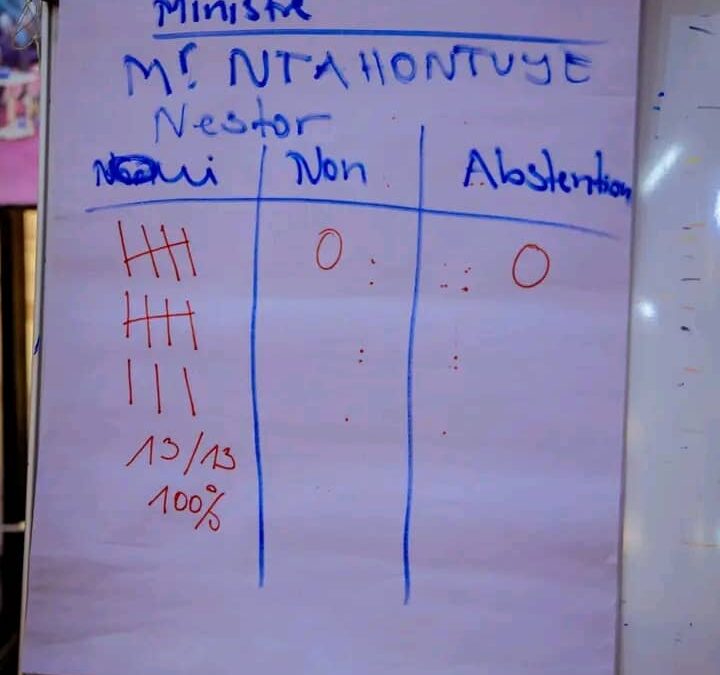 Ministre
Mr. NTAHONTUYE
Nestor
Oui Non Abstention
0 0
13/13
100%